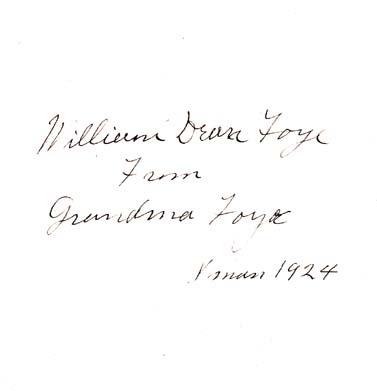 William Dean Foye
From
Grandma Foye
Xmas 1924